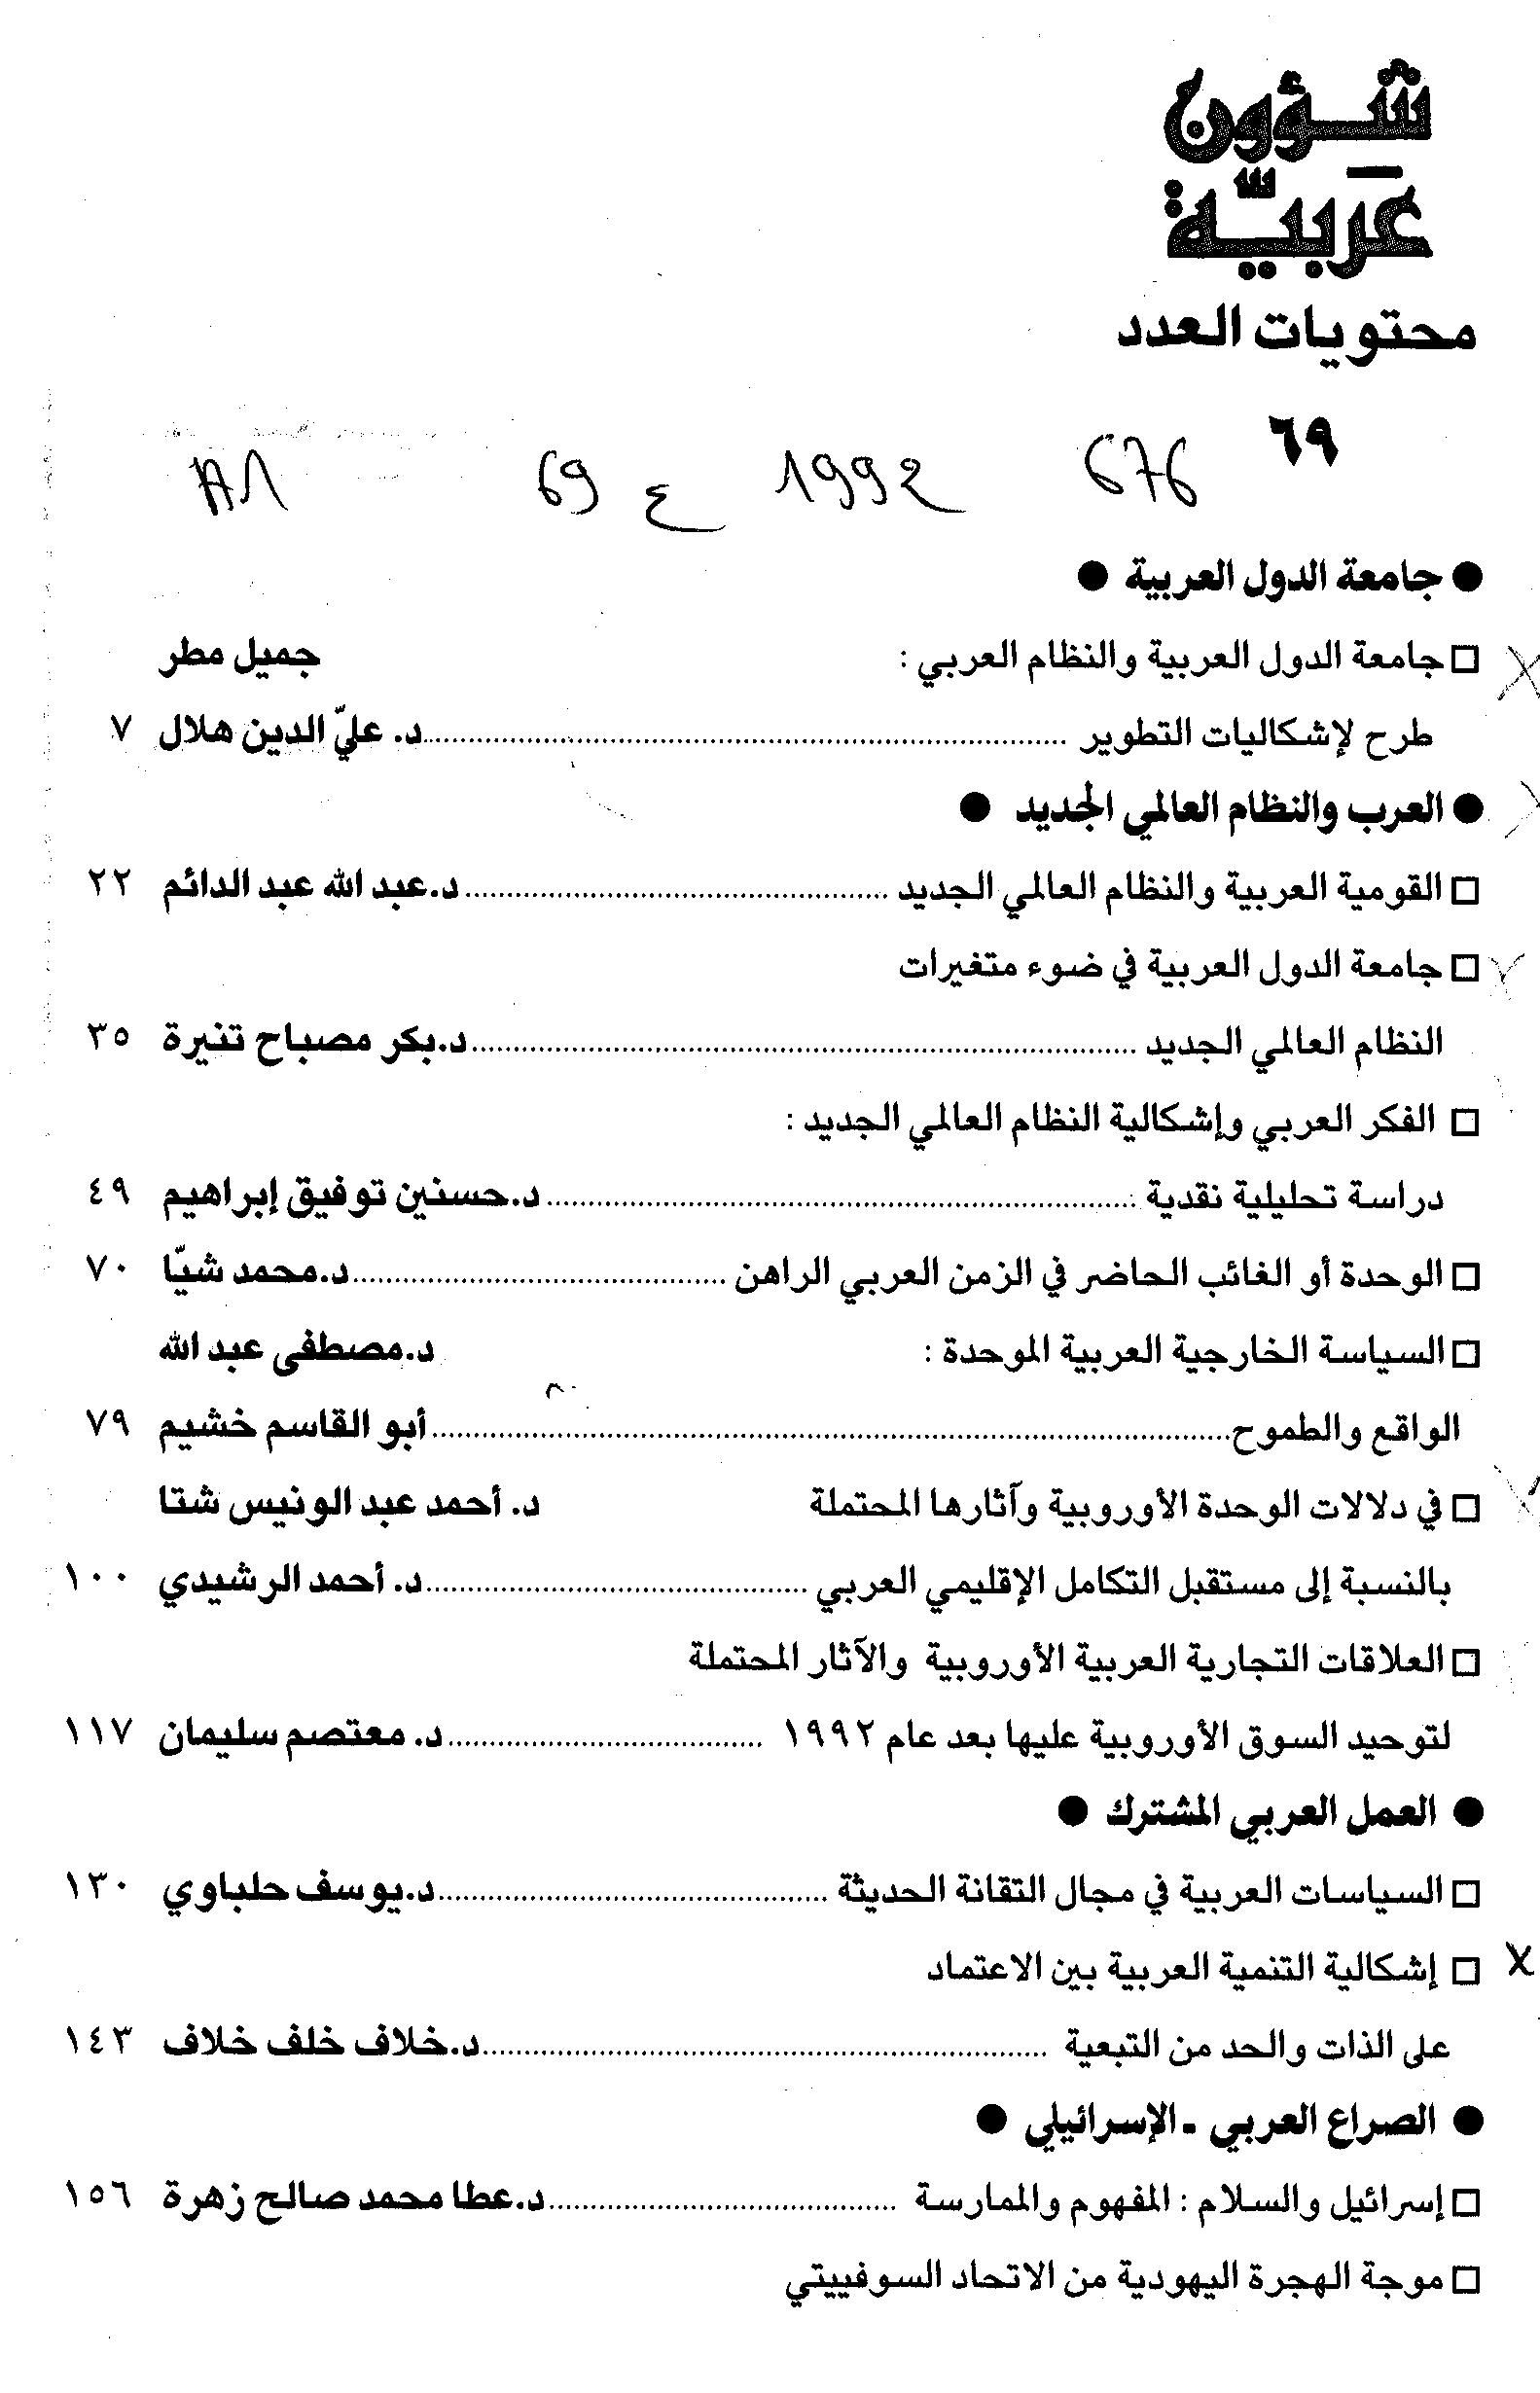 شؤون
عَربيّة
محتويات العدد
٦٩
676 1992 ع 69
● جامعة الدول العربية ●
□ جامعة الدول العربية والنظام العربي : جميل مطر
طرح لإشكاليات التطوير ........ د. عليّ الدين هلال ٧
● العرب والنظام العالمي الجديد ●
□ القومية العربية والنظام العالمي الجديد ........ د.عبد الله عبد الدائم ٢٢
□ جامعة الدول العربية في ضوء متغيرات
النظام العالمي الجديد ........ د.بكر مصباح تنيرة ٣٥
□ الفكر العربي وإشكالية النظام العالمي الجديد :
دراسة تحليلية نقدية ........ د.حسنين توفيق إبراهيم ٤٩
□ الوحدة أو الغائب الحاضر في الزمن العربي الراهن ........ د.محمد شيّا ٧٠
□ السياسة الخارجية العربية الموحدة : د.مصطفى عبد الله
الواقع والطموح ........ أبو القاسم خشيم ٧٩
□ في دلالات الوحدة الأوروبية وآثارها المحتملة د. أحمد عبد الونيس شتا
بالنسبة إلى مستقبل التكامل الإقليمي العربي ........ د. أحمد الرشيدي ١٠٠
□ العلاقات التجارية العربية الأوروبية والآثار المحتملة
لتوحيد السوق الأوروبية عليها بعد عام ١٩٩٢ ........ د. معتصم سليمان ١١٧
● العمل العربي المشترك ●
□ السياسات العربية في مجال التقانة الحديثة ........ د.يوسف حلباوي ١٣٠
□ إشكالية التنمية العربية بين الاعتماد
على الذات والحد من التبعية ........ د.خلاف خلف خلاف ١٤٣
● الصراع العربي - الإسرائيلي ●
□ إسرائيل والسلام : المفهوم والممارسة ........ د.عطا محمد صالح زهرة ١٥٦
□ موجة الهجرة اليهودية من الاتحاد السوفييتي